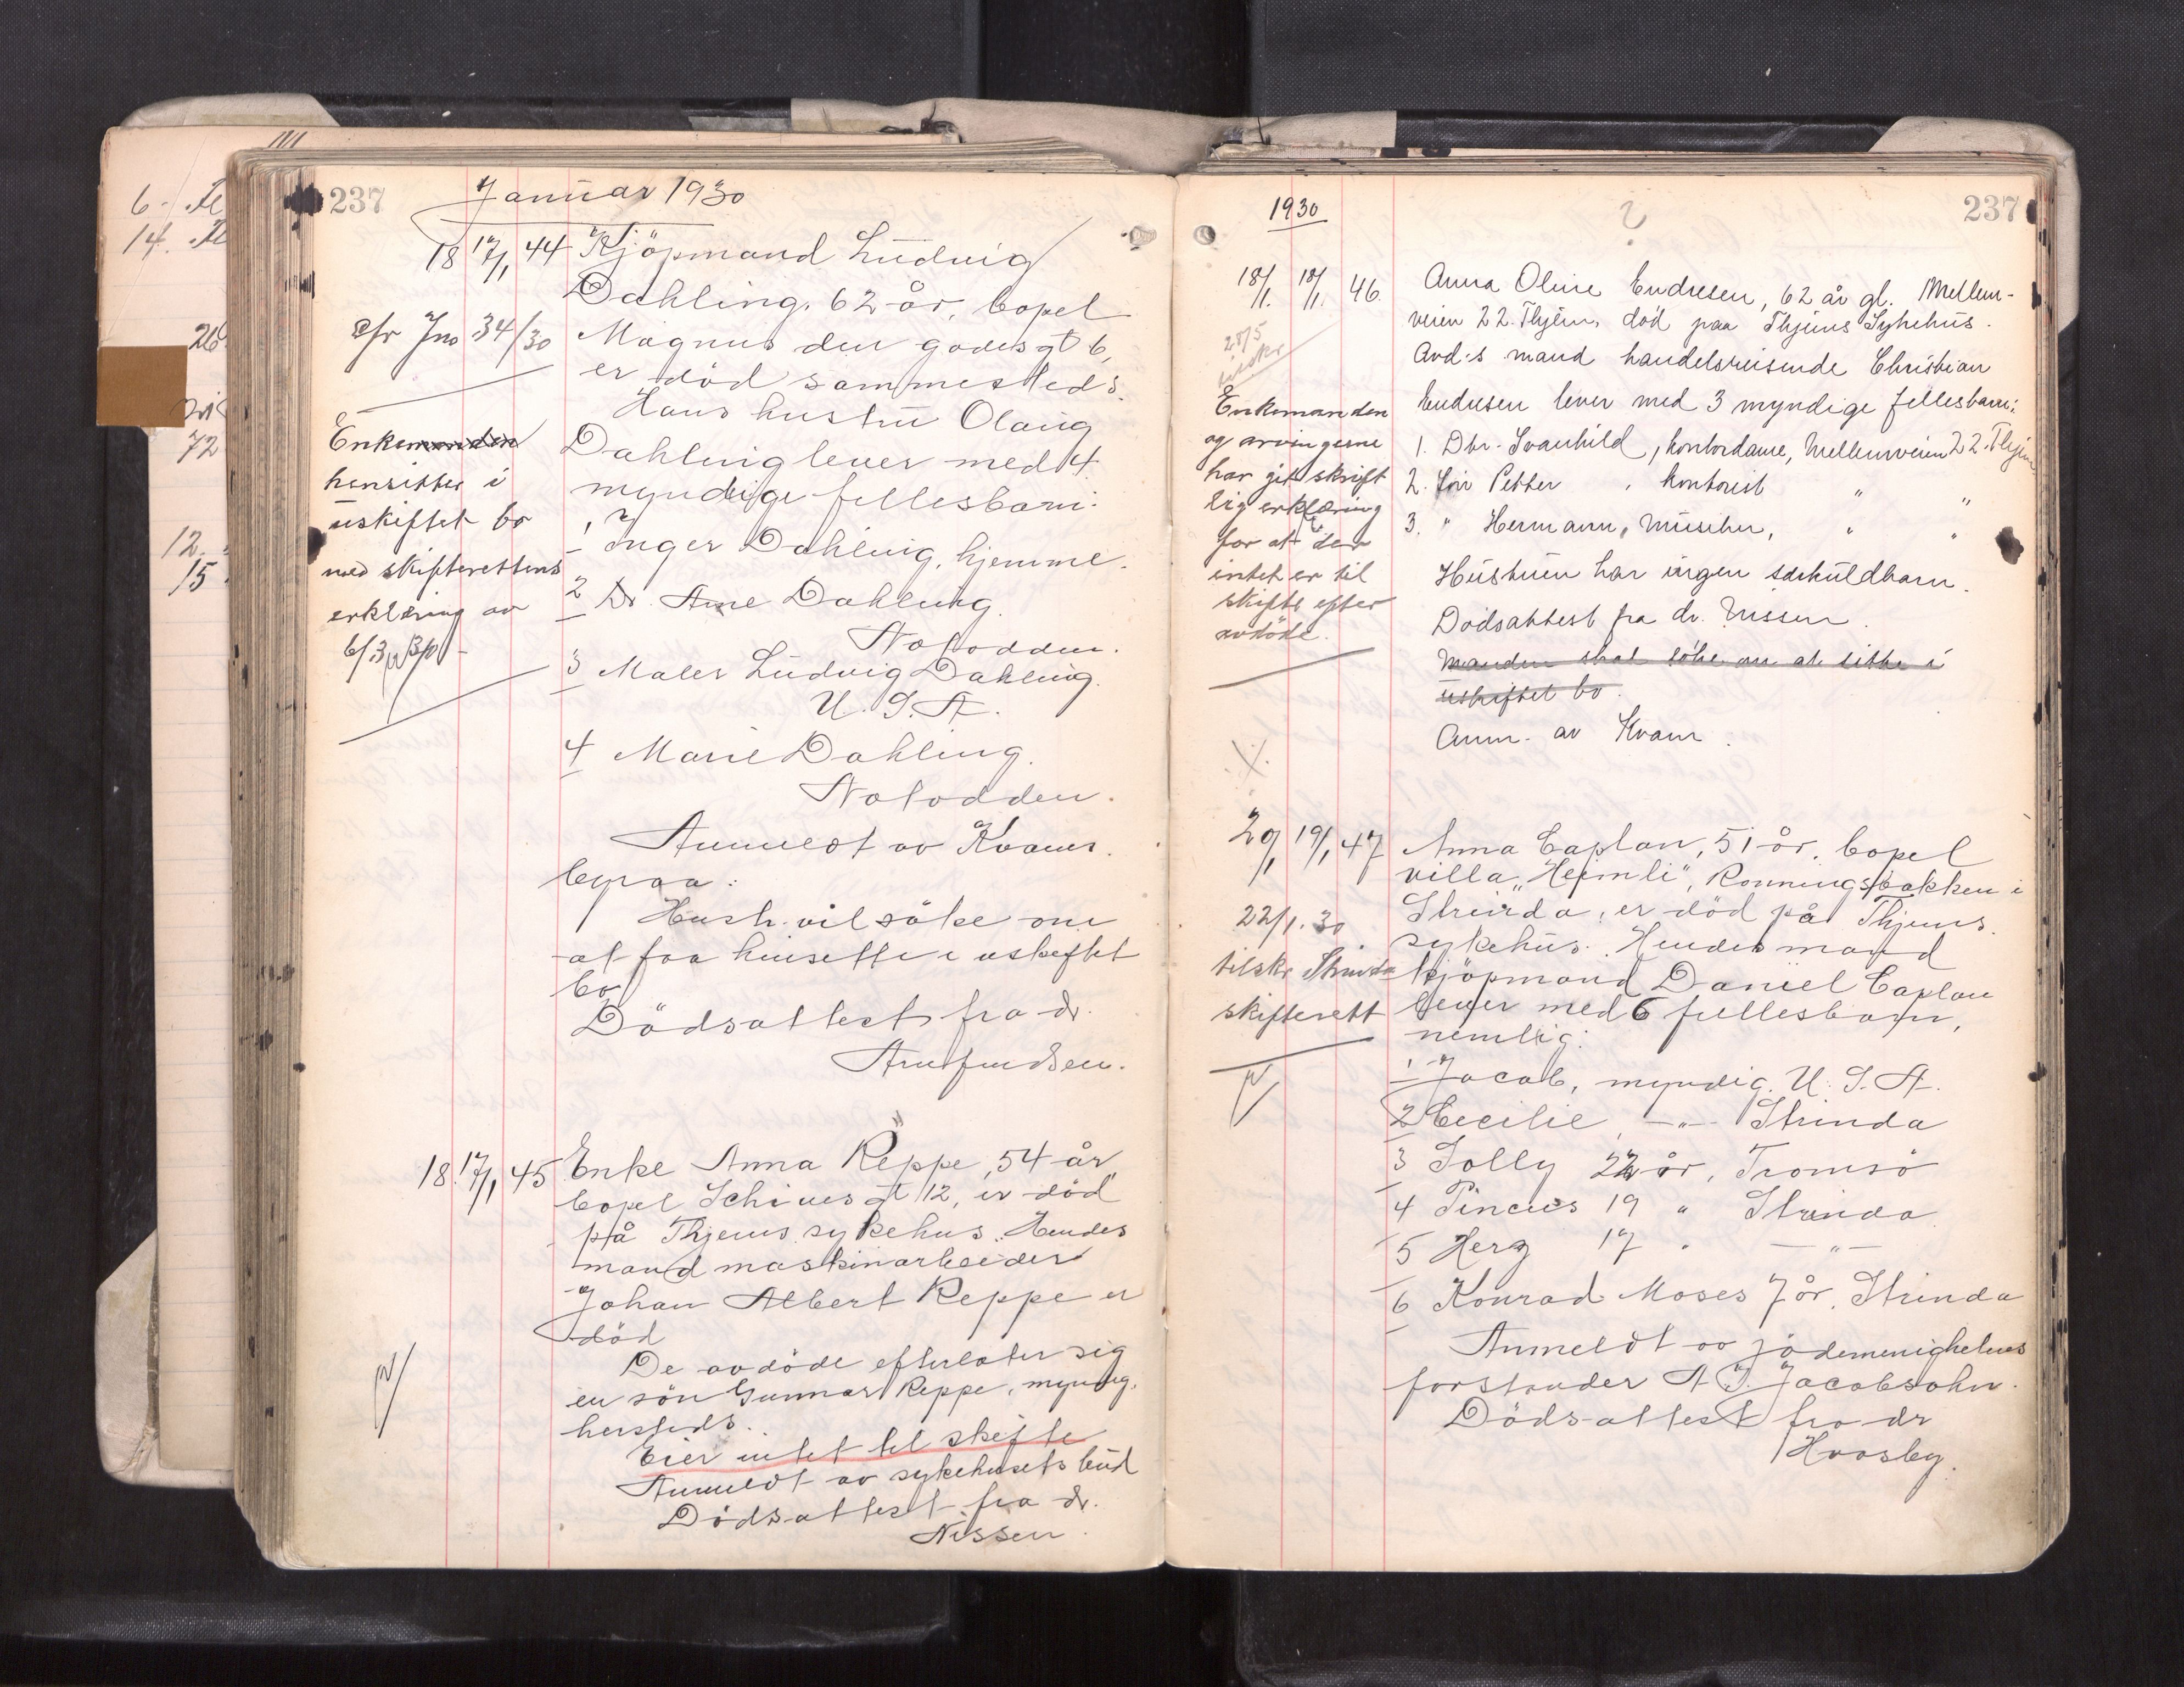 6
14.
26
72
12.
15
237
Januar 1930
18 17/1 44 Kjöpmand Ludvig
Dahling, 62 år, bopel
cfr Jno 34/30 Magnus den godes gt 6,
er död sammesteds.
Hans hustru Olaug
Enkemanden
hensitter i
uskiftet bo
med skifterettens
erklæring av
6/3 30
Dahling lever med 4
myndige fellesbarn:
1 Inger Dahling, hjemme.
2 Dr. Arne Dahling
Notodden.
3 Maler Ludvig Dahling.
U.S.A.
4 Marie Dahling.
Notodden.
Anmeldt av Kvams
byraa:
Hustr. vil söke om
at faa hensitte i uskiftet
bo
Dödsattest fra dr.
Arnfindsen.
18 17/1 45 Enke Anna Reppe, 54 år
bopel Schives gt 12, er död
på Thjems sykehus. Hendes
mand maskinarbeider
Johan Albert Reppe er
död
De avdöde efterlater sig
en sön Gunnar Reppe, myndig,
hersteds.
Eier intet til skifte
Anmeldt av sykehusets bud
Dödsattest fra dr.
Nissen.
1930
?
237
18/1. 18/1. 46. Anna Oline Endresen, 62 år gl. Mellem-
veien 22. Thjem, död paa Thjems Sykehus.
Avd-s mand handelsreisende Christian
Endresen lever med 3 myndige fellesbarn:
1. Dtr. Svanhild, kontordame, Mellemveien 22. Thjem
2. Sön Petter, kontorist " "
3. " Hermann, musiker, " "
Hustruen har ingen særkuldbarn.
Dödsattest fra dr. Nissen.
Manden skal söke om at sitte i
uskiftet bo.
Anm. av Kvam.
28/5
Enkemanden
og arvingerne
har git skrift
lig erklæring
for at der
intet er til
skifte efter
avdöde.
20/1 19/1 47 Anna Caplan, 51 år, bopel
villa "Heimli", Rönningsbakken i
Strinda, er död på Thjems
sykehus. Hendes mand
kjöpmand Daniel Caplan
lever med 6 fellesbarn,
nemlig:
22/1. 30
tilskr Strinda
skifterett
1 Jacob, myndig. U.S.A.
2 Cecilie, -"- Strinda
3 Solly 22 år, Tromsö
4 Pincus 19 " Strinda
5 Herz 17 " -"-
6 Konrad Moses 7 år, Strinda
Anmeldt av jödemenighetens
forstander A.J. Jacobsohn.
Dödsattest fra dr
Hvosley.